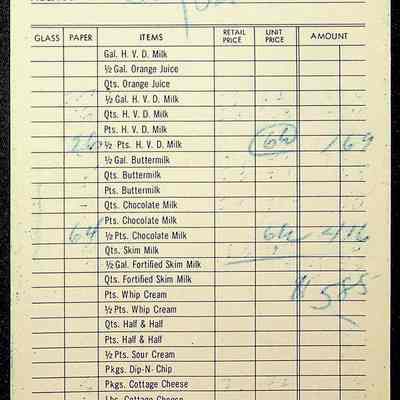 GLASS PAPER ITEMS RETAIL PRICE UNIT PRICE AMOUNT
Gal. H. V. D. Milk
½ Gal. Orange Juice
Qts. Orange Juice
½ Gal. H. V. D. Milk
Qts. H. V. D. Milk
Pts. H. V. D. Milk
26 ½ Pts. H. V. D. Milk 6½ 169
½ Gal. Buttermilk
Qts. Buttermilk
Pts. Buttermilk
Qts. Chocolate Milk
Pts. Chocolate Milk
64 ½ Pts. Chocolate Milk 6½ 416
Qts. Skim Milk
½ Gal. Fortified Skim Milk
Qts. Fortified Skim Milk
Pts. Whip Cream $ 585
½ Pts. Whip Cream
Qts. Half & Half
Pts. Half & Half
½ Pts. Sour Cream
Pkgs. Dip-N-Chip
Pkgs. Cottage Cheese
Lbs. Cottage Cheese